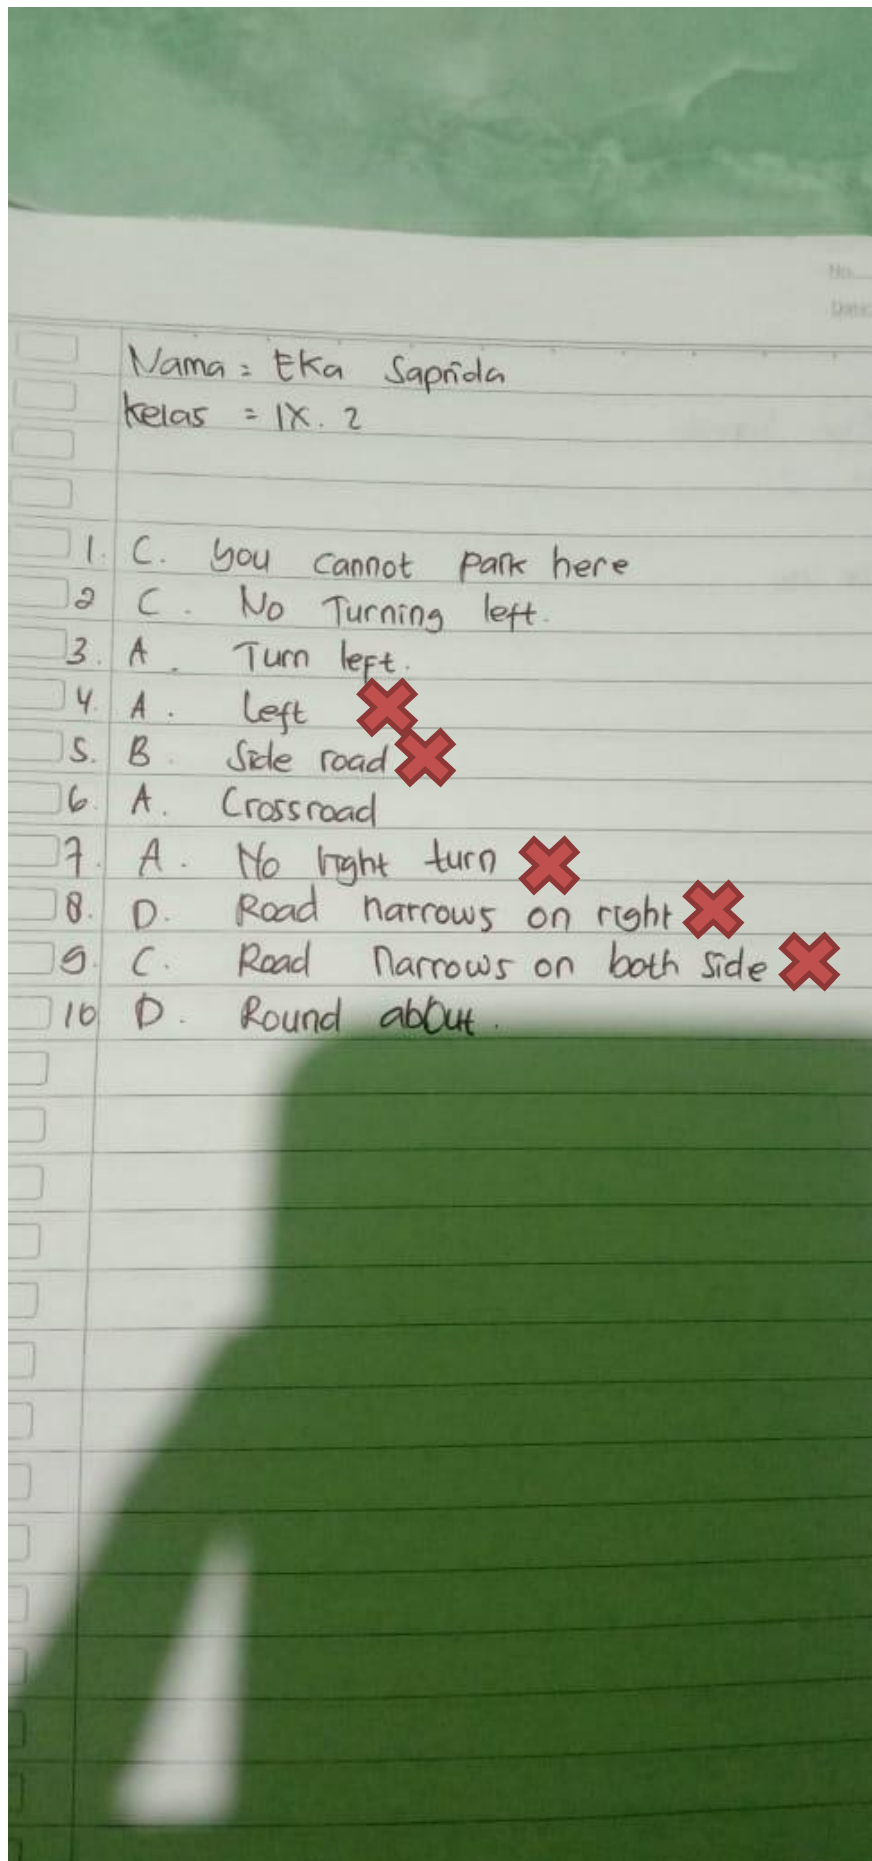 No
Date
Nama = Eka Saprida
Kelas = IX. 2
1. C. you cannot park here
2 C. No Turning left.
3. A. Turn left.
4. A. Left
5. B. Side road
6. A. Crossroad
7. A. No right turn
8. D. Road narrows on right
9. C. Road Narrows on both side
10 D. Round about.